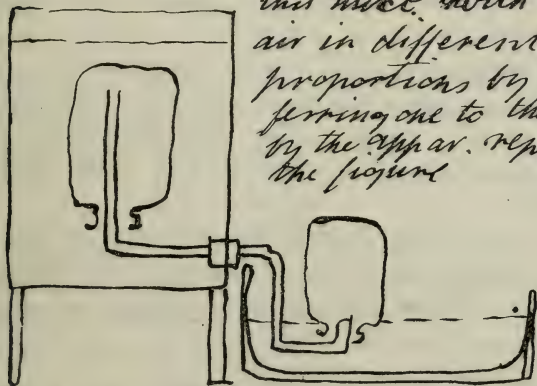 this mixt. with
air in different
proportions by
ferring one to the
by the appar. rep
the figure